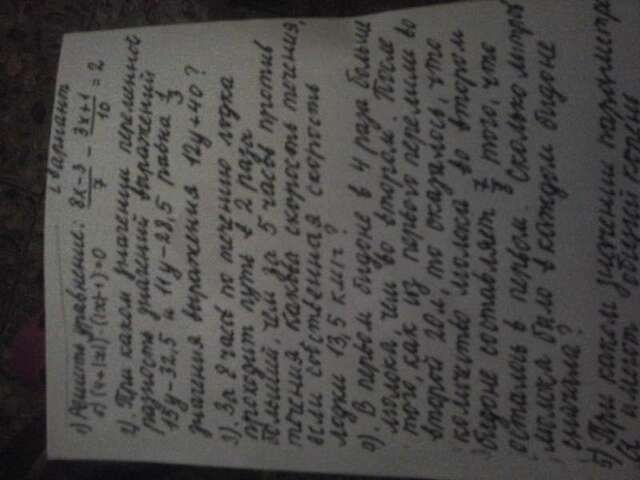 I вариант
1) Решить уравнение: 8x-3/7 - 3x+1/10 = 2
б) (4+|x|)·(|x|-1)=0
2). При каком значении переменной
разность значений выражений
15y-32,5 и 11y-28,5 равна 1/3
значения выражения 12y+40?
3). За 8 часов по течению лодка
проходит путь в 2 раза
больший, чем за 5 часов против
течения. Какова скорость течения,
если собственная скорость
лодки 13,5 км/ч?
4). В первом бидоне в 4 раза больше
молока, чем во втором. После
того, как из первого перелили во
второй 20л, то оказалось, что
количество молока во втором
бидоне составляет 7/8 того, что
осталось в первом. Сколько литров
молока было в каждом бидоне
сначала?
5) При каком значении параметра
а имеют общий корень